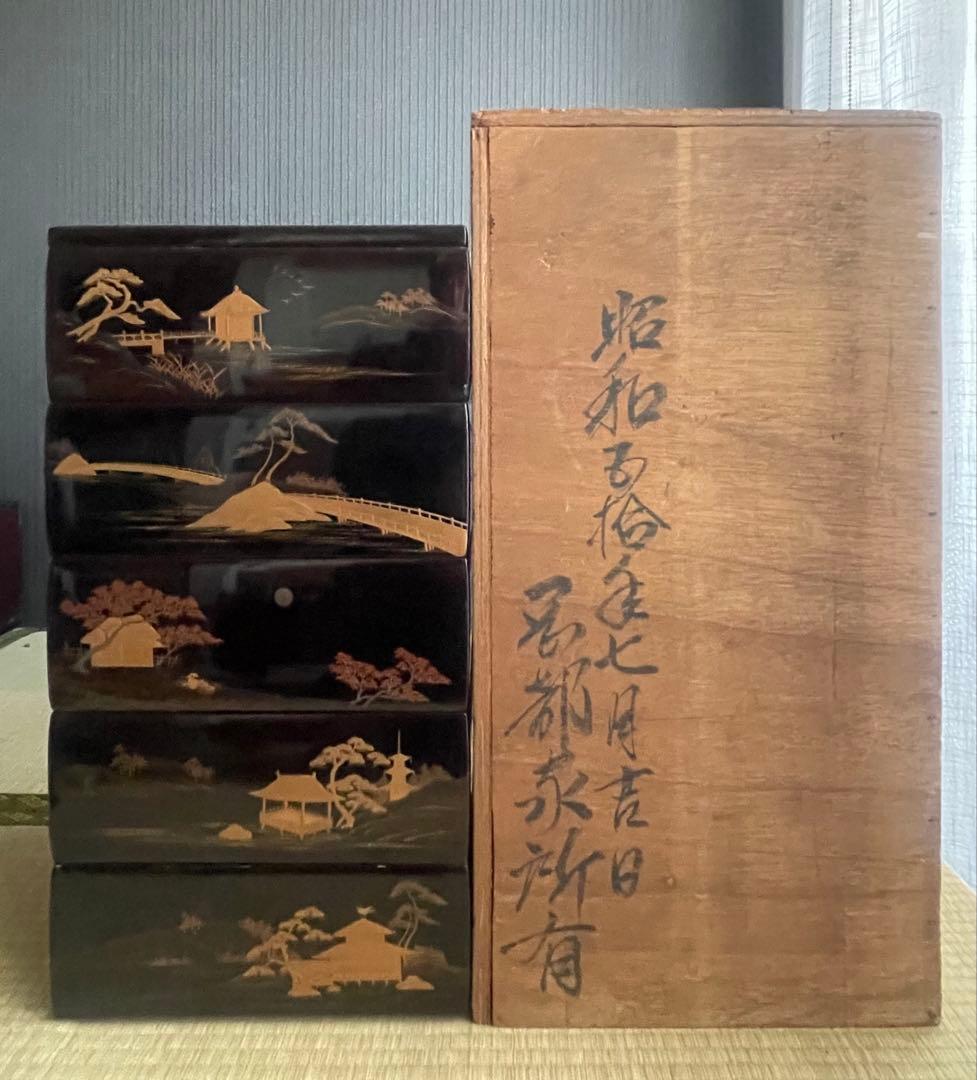 昭和五拾年七月吉日
都家所有